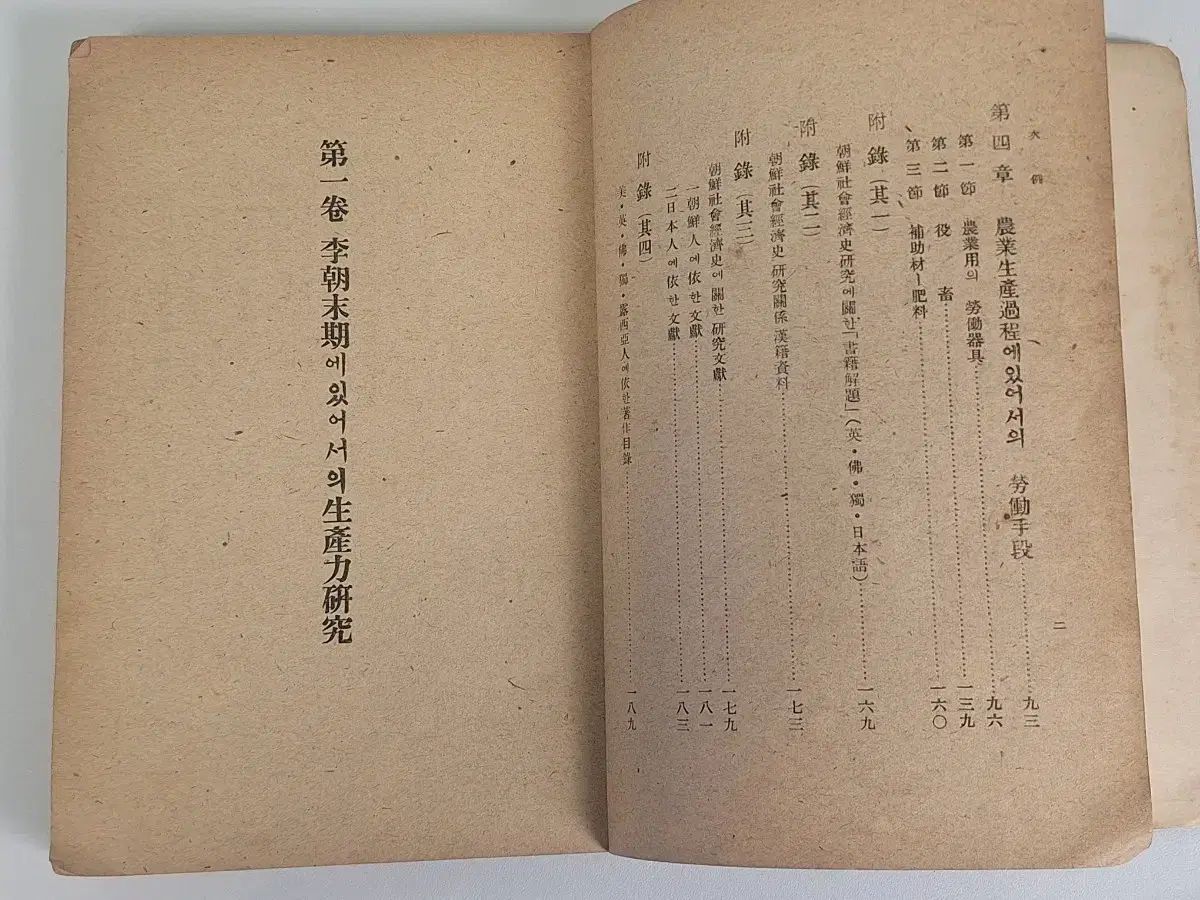 第四章 農業生產過程에있어서의 勞働手段……九三
第一節 農業用의 勞働器具……九六
第二節 役 畜……一三九
第三節 補助材ー肥料……一六〇
附 錄(其一)
朝鮮社會經濟史研究에關한「書籍解題」(英・佛・獨・日本語)……一六九
附 錄(其二)
朝鮮社會經濟史 研究關係 漢籍資料……一七三
附 錄(其三)
朝鮮社會經濟史에關한 研究文獻……一七九
一 朝鮮人에依한文獻……一八一
二 日本人에依한文獻……一八三
附 錄(其四)
美・英・佛・獨・露西亞人에依한著作目錄……一八九
二
第一卷 李朝末期에있어서의生產力硏究